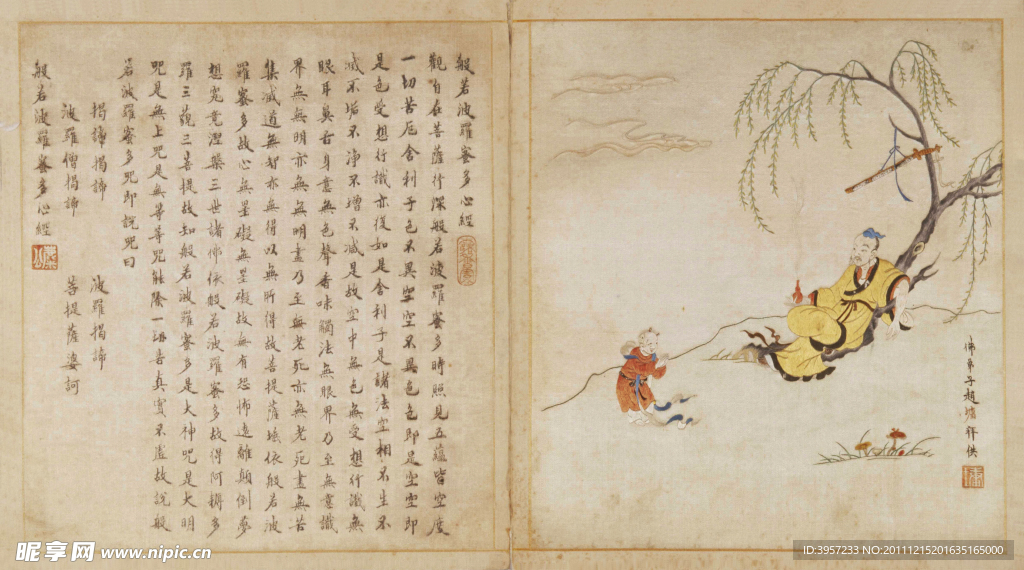 般若波羅蜜多心經
觀自在菩薩行深般若波羅蜜多時照見五蘊皆空度
一切苦厄舍利子色不異空空不異色色即是空空即
是色受想行識亦復如是舍利子是諸法空相不生不
滅不垢不淨不增不減是故空中無色無受想行識無
眼耳鼻舌身意無色聲香味觸法無眼界乃至無意識
界無無明亦無無明盡乃至無老死亦無老死盡無苦
集滅道無智亦無得以無所得故菩提薩埵依般若波
羅蜜多故心無罣礙無罣礙故無有恐怖遠離顛倒夢
想究竟涅槃三世諸佛依般若波羅蜜多故得阿耨多
羅三藐三菩提故知般若波羅蜜多是大神咒是大明
咒是無上咒是無等等咒能除一切苦真實不虛故說般
若波羅蜜多咒即說咒曰
揭諦揭諦 波羅揭諦
波羅僧揭諦 菩提薩婆訶
般若波羅蜜多心經
佛弟子趙墉拜供
昵享网 www.nipic.cn
ID:3957233 NO:20111215201635165000